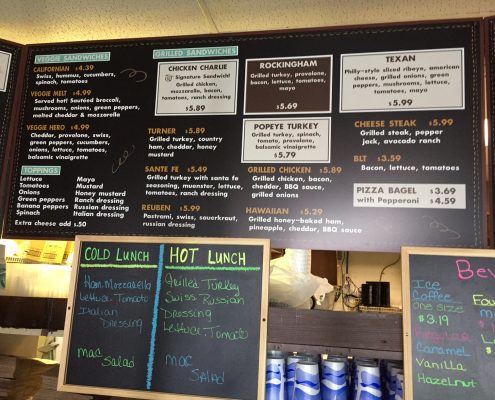 VEGGIE SANDWICHES
CALIFORNIAN $4.39
Swiss, hummus, cucumbers,
spinach, tomatoes
VEGGIE MELT $4.99
Served hot! Sautéed broccoli,
mushrooms, onions, green peppers,
melted cheddar & mozzarella
VEGGIE HERO $4.99
Cheddar, provolone, swiss,
green peppers, cucumbers,
onions, lettuce, tomatoes,
balsamic vinaigrette
TOPPINGS
Lettuce
Tomatoes
Onions
Green peppers
Banana peppers
Spinach
Mayo
Mustard
Honey mustard
Ranch dressing
Russian dressing
Italian dressing
Extra cheese add $.50
GRILLED SANDWICHES
CHICKEN CHARLIE
Signature Sandwich!
Grilled chicken,
mozzarella, bacon,
tomatoes, ranch dressing
$5.89
TURNER $5.89
Grilled turkey, country
ham, cheddar, honey
mustard
SANTE FE $5.49
Grilled turkey with sante fe
seasoning, muenster, lettuce,
tomatoes, ranch dressing
REUBEN $5.99
Pastrami, swiss, sauerkraut,
russian dressing
ROCKINGHAM
Grilled turkey, provolone,
bacon, lettuce, tomatoes,
mayo
$5.69
POPEYE TURKEY
Grilled turkey, spinach,
tomato, provolone,
balsamic vinaigrette
$5.79
GRILLED CHICKEN $5.89
Grilled chicken, bacon,
cheddar, BBQ sauce,
grilled onions
HAWAIIAN $5.29
Grilled honey-baked ham,
pineapple, cheddar, BBQ sauce
TEXAN
Philly-style sliced ribeye, american
cheese, grilled onions, green
peppers, mushrooms, lettuce,
tomatoes, mayo
$5.99
CHEESE STEAK $5.99
Grilled steak, pepper
jack, avocado ranch
BLT $3.59
Bacon, lettuce, tomatoes
PIZZA BAGEL $3.69
with Pepperoni $4.59
COLD LUNCH
Ham Mozzarella
Lettuce Tomato
Italian
Dressing
Mac
Salad
HOT LUNCH
Grilled Turkey
Swiss Russian
Dressing
Lettuce, Tomato
Mac
Salad
Ice
Coffee
one size
$3.19
Regular
Caramel
Vanilla
Hazelnut